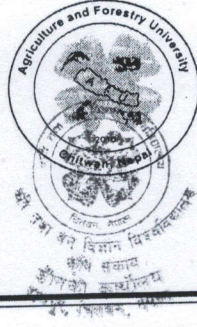 Agriculture and Forestry University
2010
Chitwan, Nepal
चितवन, नेपाल
कृषि तथा वन विज्ञान विश्वविद्यालय
कृषि संकाय
डीनको कार्यालय